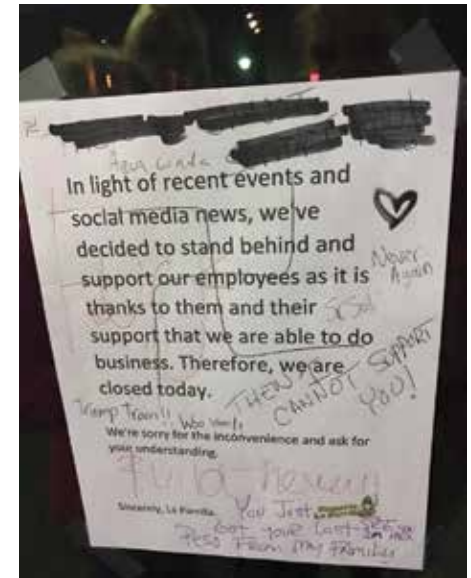 Agua Linda
In light of recent events and
social media news, we've
decided to stand behind and
support our employees as it is
thanks to them and their
support that we are able to do
business. Therefore, we are
closed today.
Never
Again
THEN I
CANNOT SUPPORT
YOU!
Trump Train!! Woo Woo!!
We're sorry for the inconvenience and ask for
your understanding.
Sincerely, La Parrilla
You Just
Got your Last
Peso From my Family